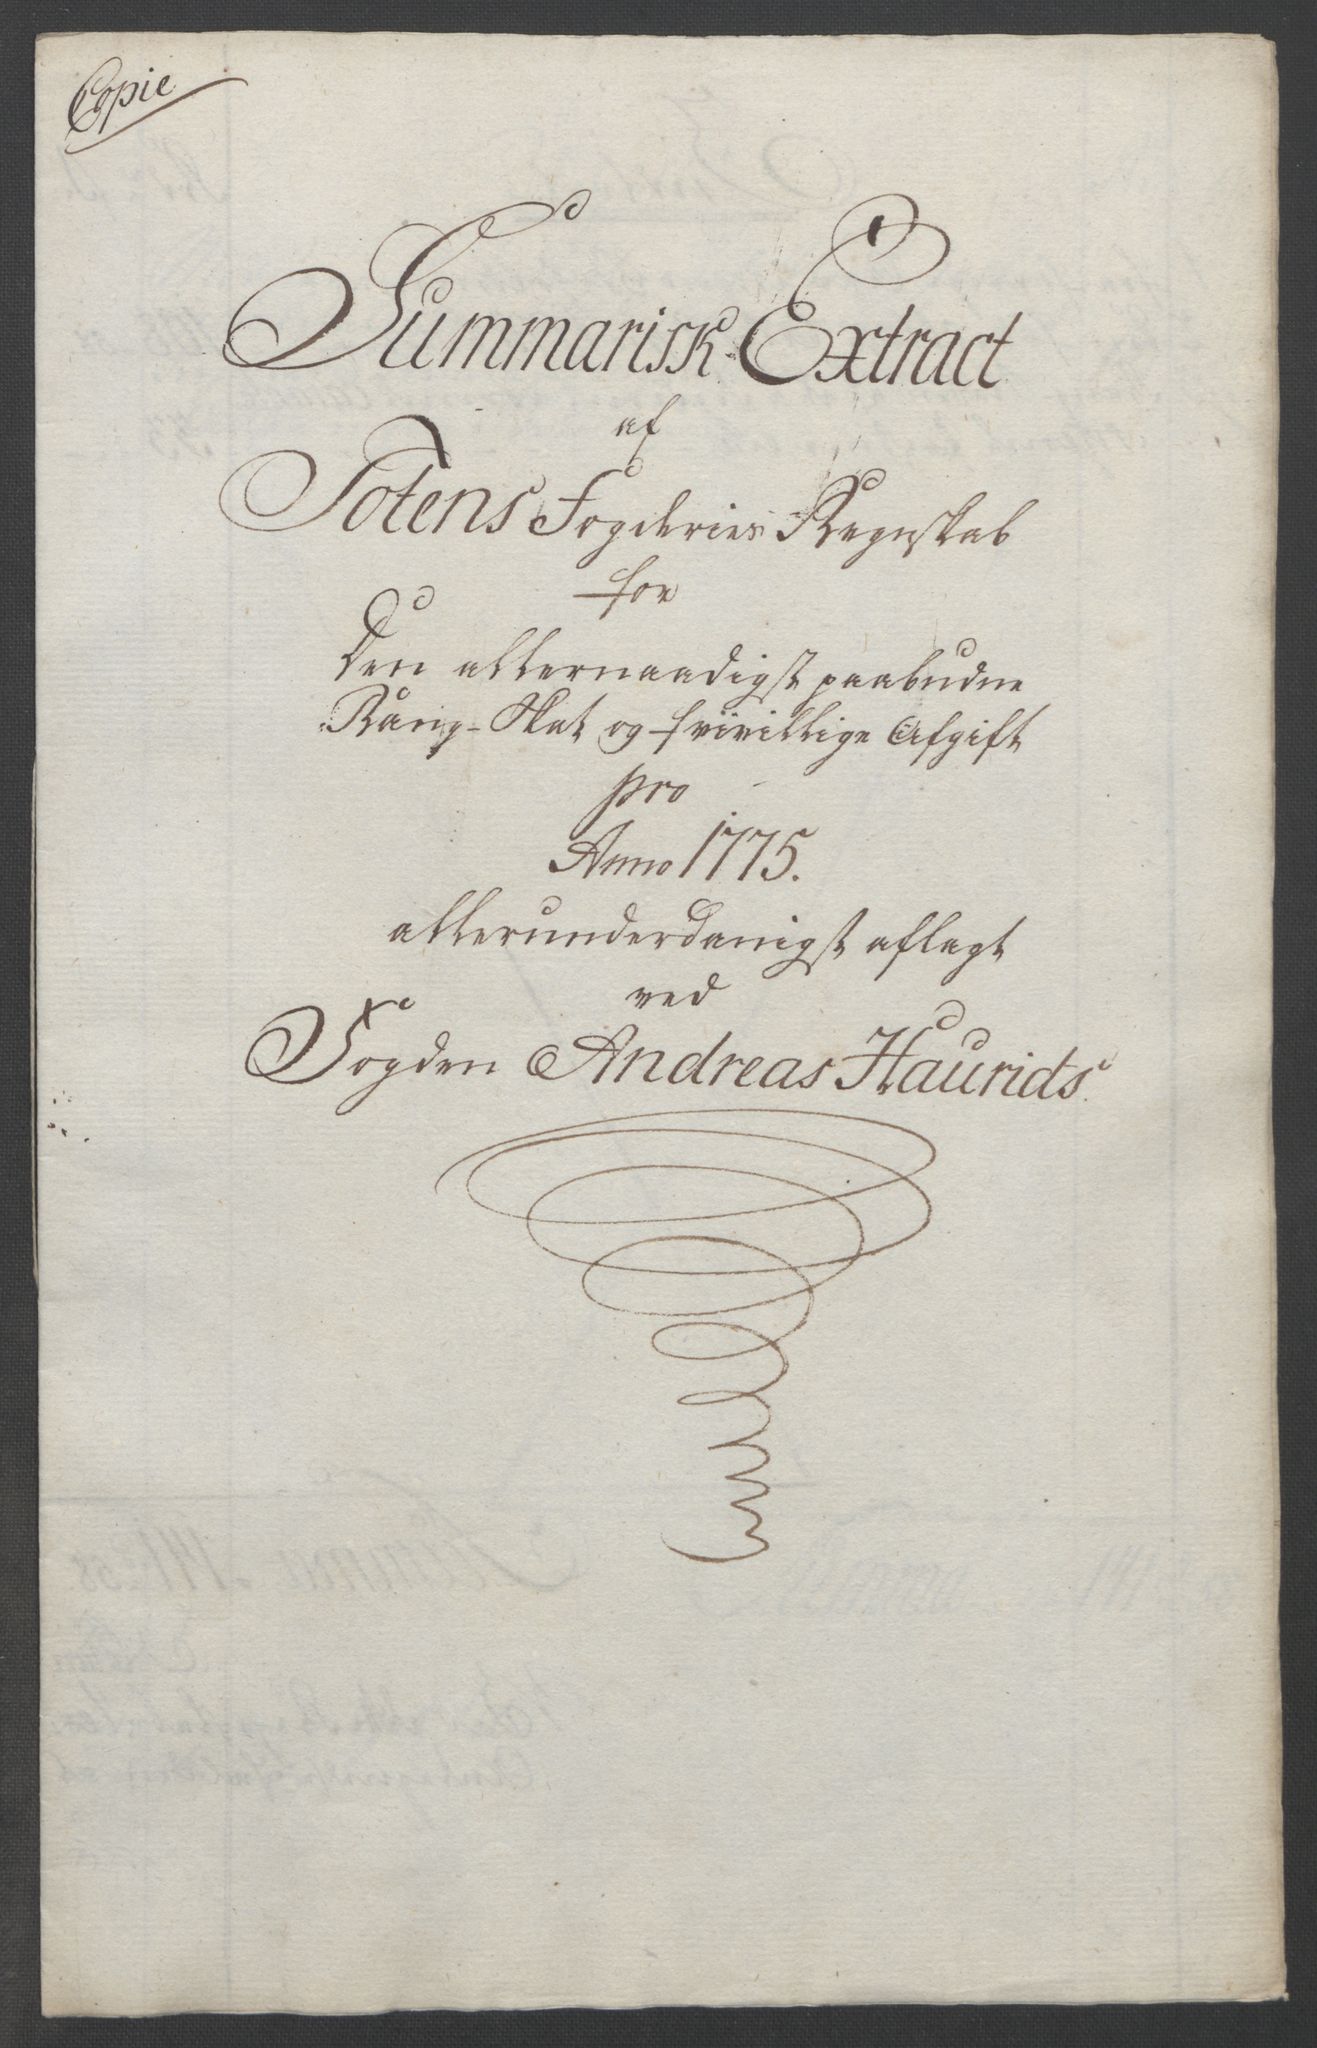 Copie
Summarisk Extract
af
Totens Fogderies Regnskab
for
Den allernaadigst paabudne
Rang-Skat og frivillige Afgift
pro
Anno 1775.
allerunderdanigst aflagt
ved
Fogden Andreas Haurids.